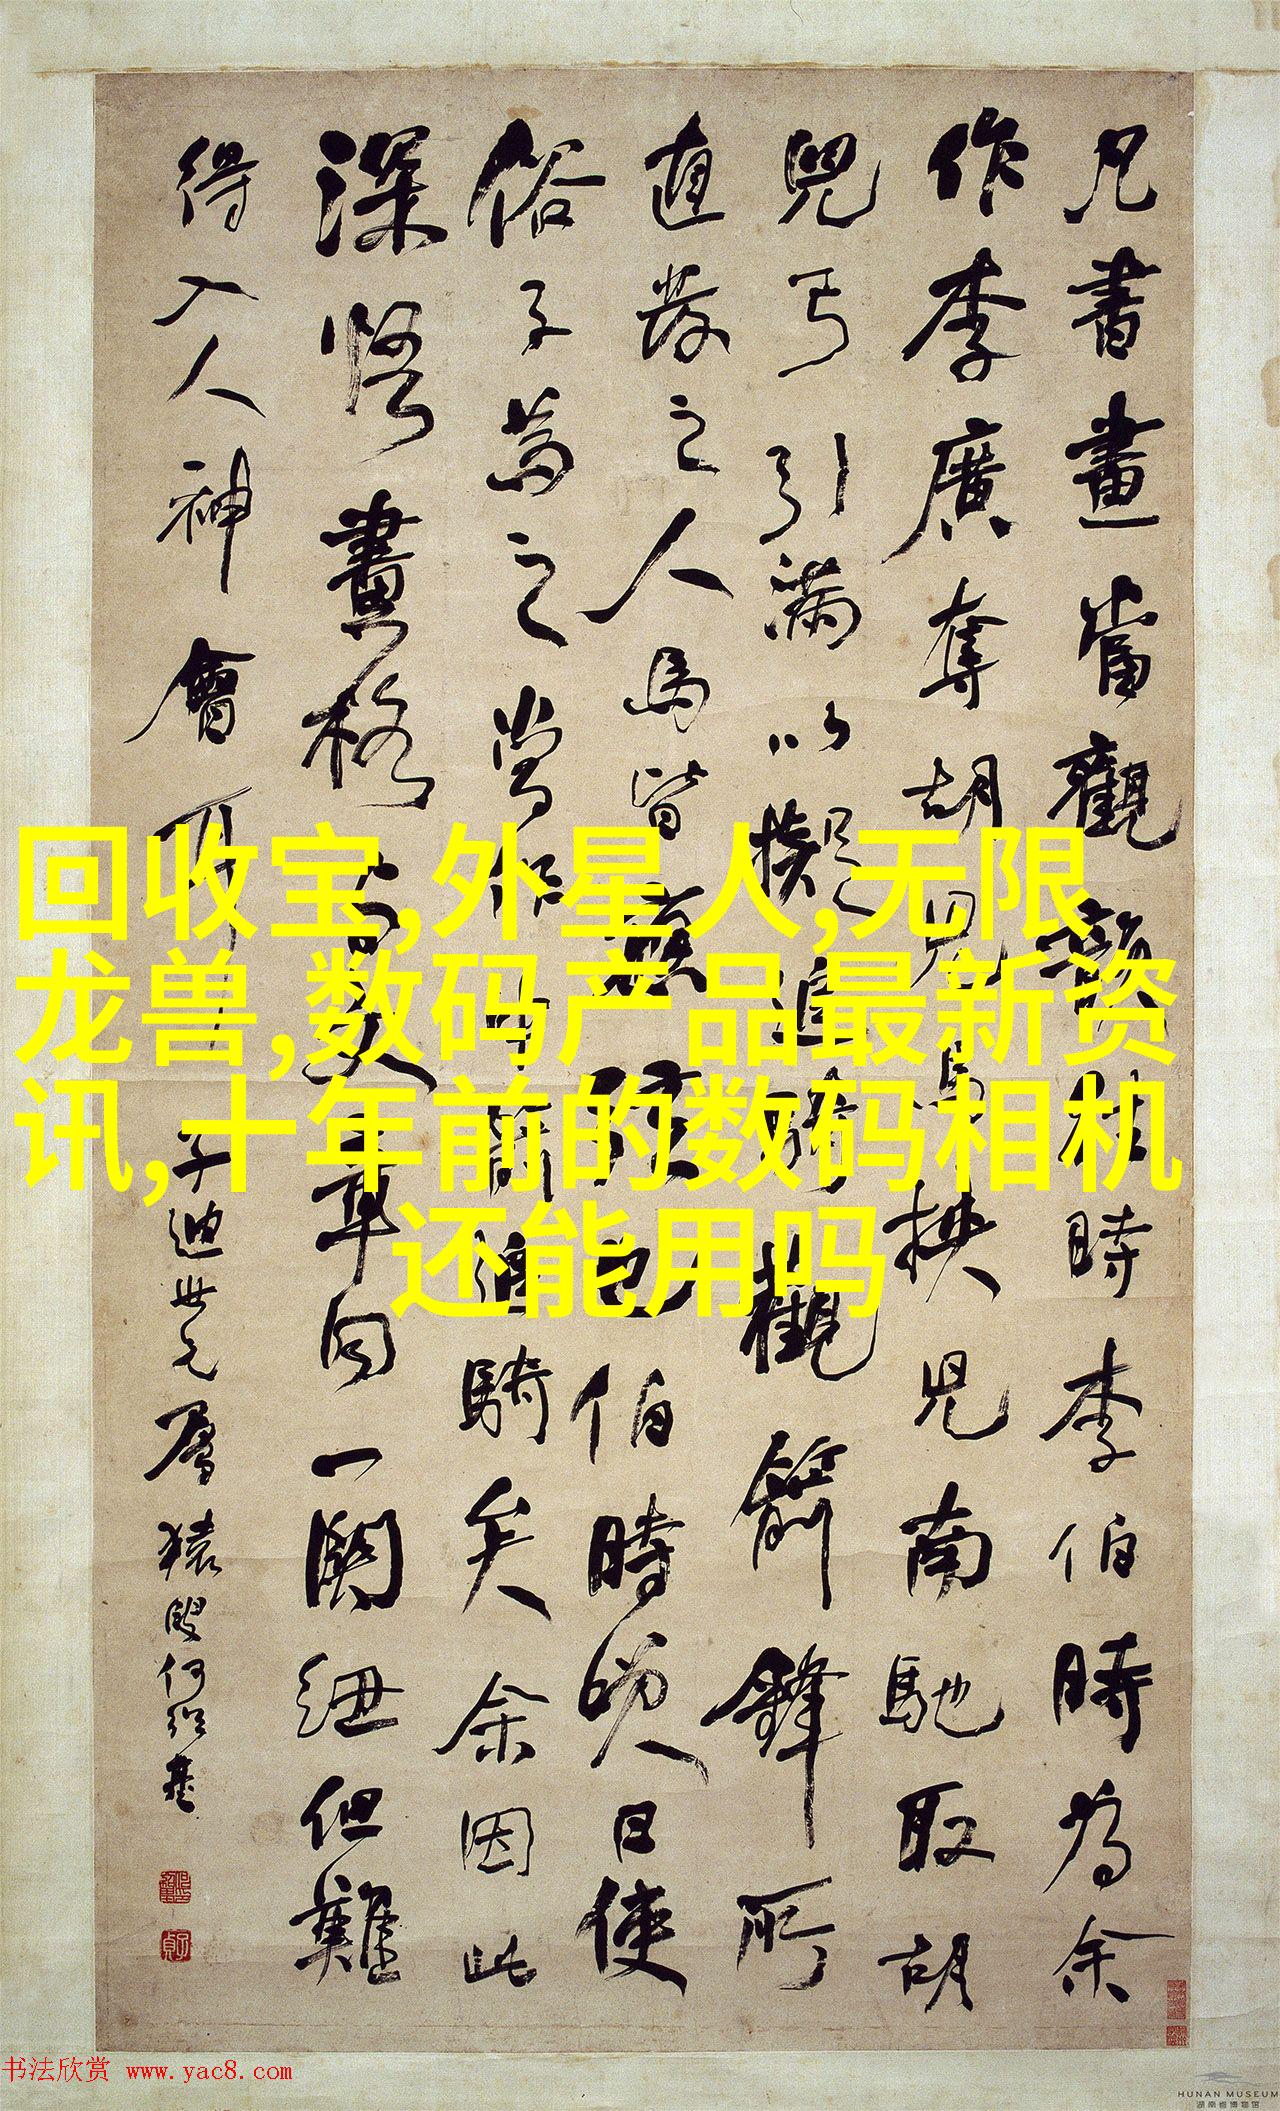 回收宝,外星人,无限
龙兽,数码产品最新资
讯,十年前的数码相机
还能用吗
凡書畫當觀韻往時李伯時為余
作李廣奪胡兒馬挾兒南馳取胡
兒弓引滿以擬追騎觀箭鋒所
直發之人馬皆應弦也伯時笑曰使
俗子為之當作中箭追騎矣余因此
深悟畫格與文章同一關紐但難
得入人神會耳
子迪世兄屬 猿叟何紹基
书法欣赏 www.yac8.com
HUNAN MUSEUM
湖南省博物館